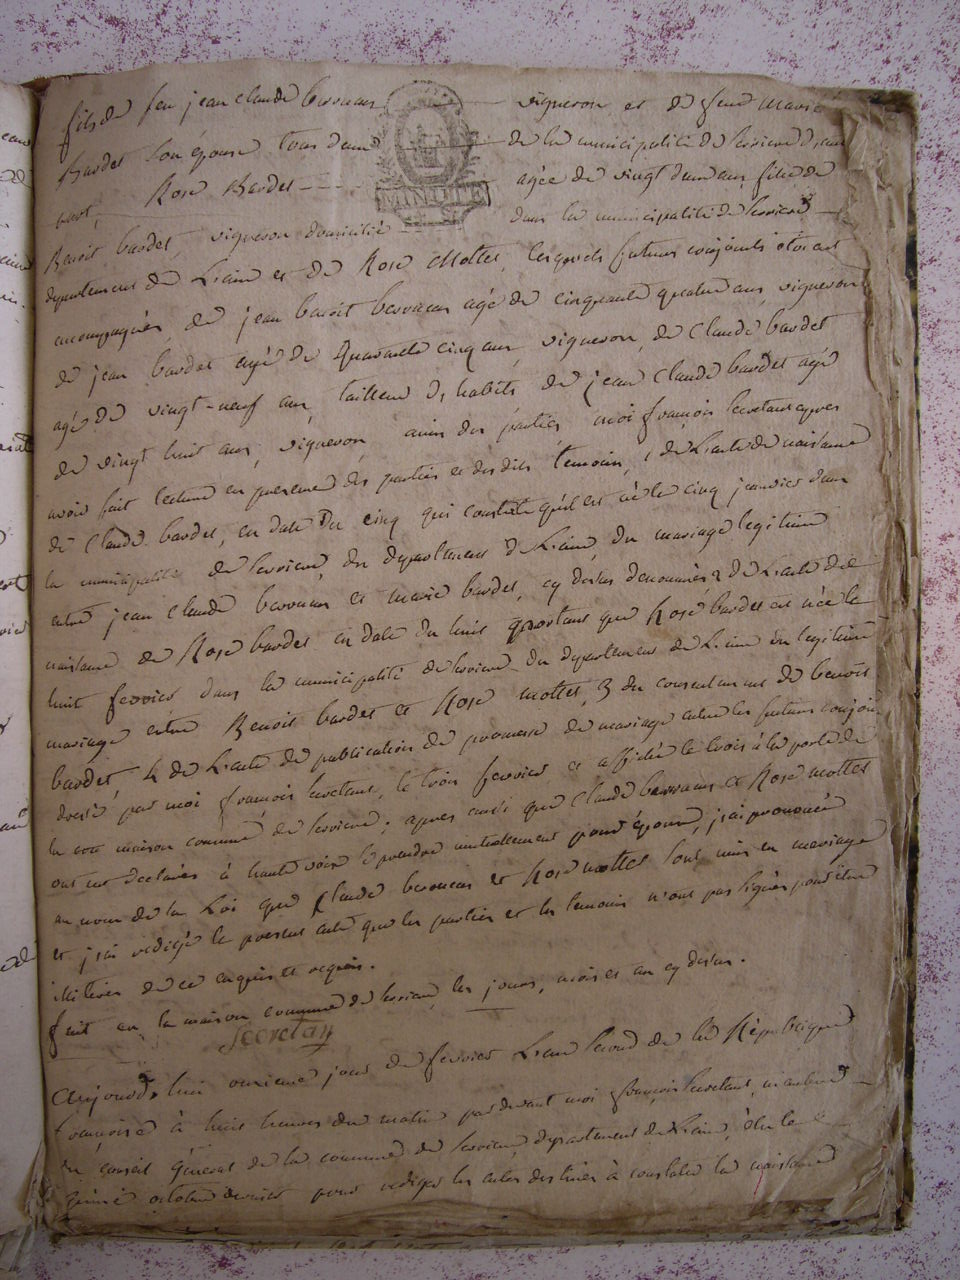 fils de feu jean claude berroux vigneron et de feue Marie
Bardet son épouse tous deux de la municipalité de d'une
part, Rose Bardet agée de vingt deux ans fille de
Benoit bardet, vigneron domicilié dans la municipalité de
departement de L'ain et de Rose Mottet, lesquels futurs conjoints étoient
accompagnés de jean benoit agé de cinquante quatre ans, vigneron
de jean bardet agé de quarante cinq ans, vigneron, de Claude bardet
agé de vingt-neuf ans tailleur d, habits de jean Claude bardet agé
de vingt huit ans, vigneron, amis des parties moi françois Secretant apres
avoir fait lecture en presence des parties et des dits temoins, 1 de L'acte de naissance
de Claude bardet, en date du cinq qui constate qu'il est né le cinq janvier dans
la municipalité de du departement de L'ain, du mariage legitime
entre jean claude et marie bardet, cy dessus denommés 2 de L'acte de
naissance de Rose bardet en date du huit portant que Rose bardet est née le
huit fevrier, dans la municipalité de du departement de L'ain du legitime
mariage entre Benoit bardet et Rose mottet, 3 du consentement de benoit
bardet, 4 de L'acte de publication de promesse de mariage entre les futurs conjoin
dressé par moi françois Secretant, le trois fevrier, et affichée le trois à la porte de
la maison commune de ; apres aussi que Claude et Rose mottet
ont eut declarés à haute voix se prendre mutuellement pour époux, j'ai prononcé
au nom de la Loi que Claude et Rose mottet sont unis en mariage
et j'ai redigé le present acte que les parties et les temoins n'ont pas signés pour être
illiterés de ce enquis et requis.
fait en la maison commune de les jours, mois et an cy dessus.
Secretan
Aujourd, hui onzieme jour de fevrier L'an second de la Republique
françoise à huit heures du matin par devant moi françois Secretant, membre
du conseil général de la commune de departement de L'ain, élu le
octobre dernier pour rediger les actes destinés à constater la naissance
MINUTE